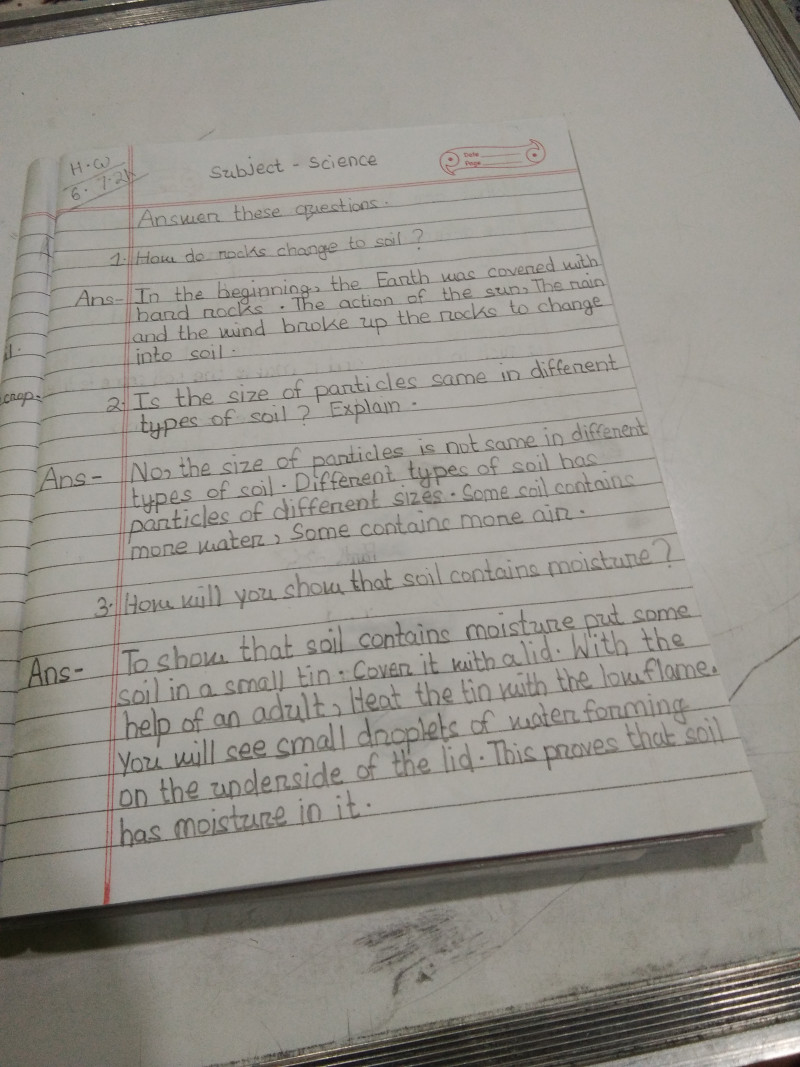 H.W
6.7.21
Subject - Science
Date
Page
Answer these questions.
1. How do rocks change to soil?
Ans- In the beginning, the Earth was covered with
hard rocks. The action of the sun, The rain
and the wind broke up the rocks to change
into soil.
2. Is the size of particles same in different
types of soil? Explain.
Ans- No, the size of particles is not same in different
types of soil. Different types of soil has
particles of different sizes. Some soil contains
more water, Some contains more air.
3. How will you show that soil contains moisture?
Ans- To show that soil contains moisture put some
soil in a small tin. Cover it with a lid. With the
help of an adult, Heat the tin with the low flame.
You will see small droplets of water forming
on the underside of the lid. This proves that soil
has moisture in it.
crop.